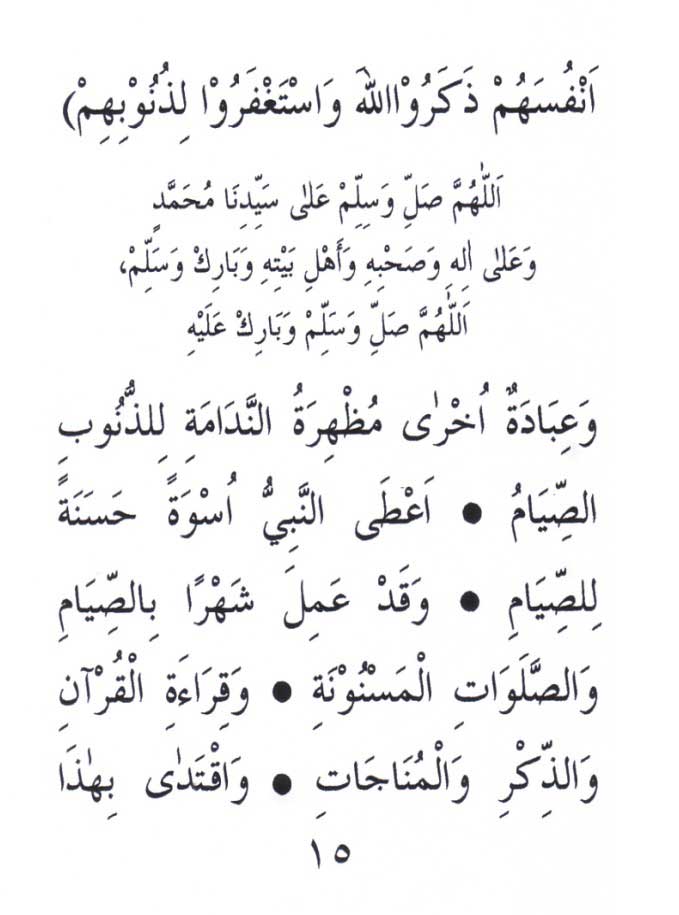 اَنْفُسَهُمْ ذَكَرُوْااللهَ وَاسْتَغْفَرُوْا لِذُنُوْبِهِمْ)
اَللّٰهُمَّ صَلِّ وَسَلِّمْ عَلٰى سَيِّدِنَا مُحَمَّدٍ
وَعَلٰى اٰلِهِ وَصَحْبِهِ وَأَهْلِ بَيْتِهِ وَبَارِكْ وَسَلِّمْ،
اَللّٰهُمَّ صَلِّ وَسَلِّمْ وَبَارِكْ عَلَيْهِ
وَعِبَادَةٌ اُخْرٰى مُظْهِرَةُ النَّدَامَةِ لِلذُّنُوبِ
الصِّيَامُ ● اَعْطَى النَّبِيُّ اُسْوَةً حَسَنَةً
لِلصِّيَامِ ● وَقَدْ عَمِلَ شَهْرًا بِالصِّيَامِ
وَالصَّلَوَاتِ الْمَسْنُوْنَةِ ● وَقِرَاءَةِ الْقُرْآنِ
وَالذِّكْرِ وَالْمُنَاجَاتِ ● وَاقْتَدٰى بِهٰذَا
١٥